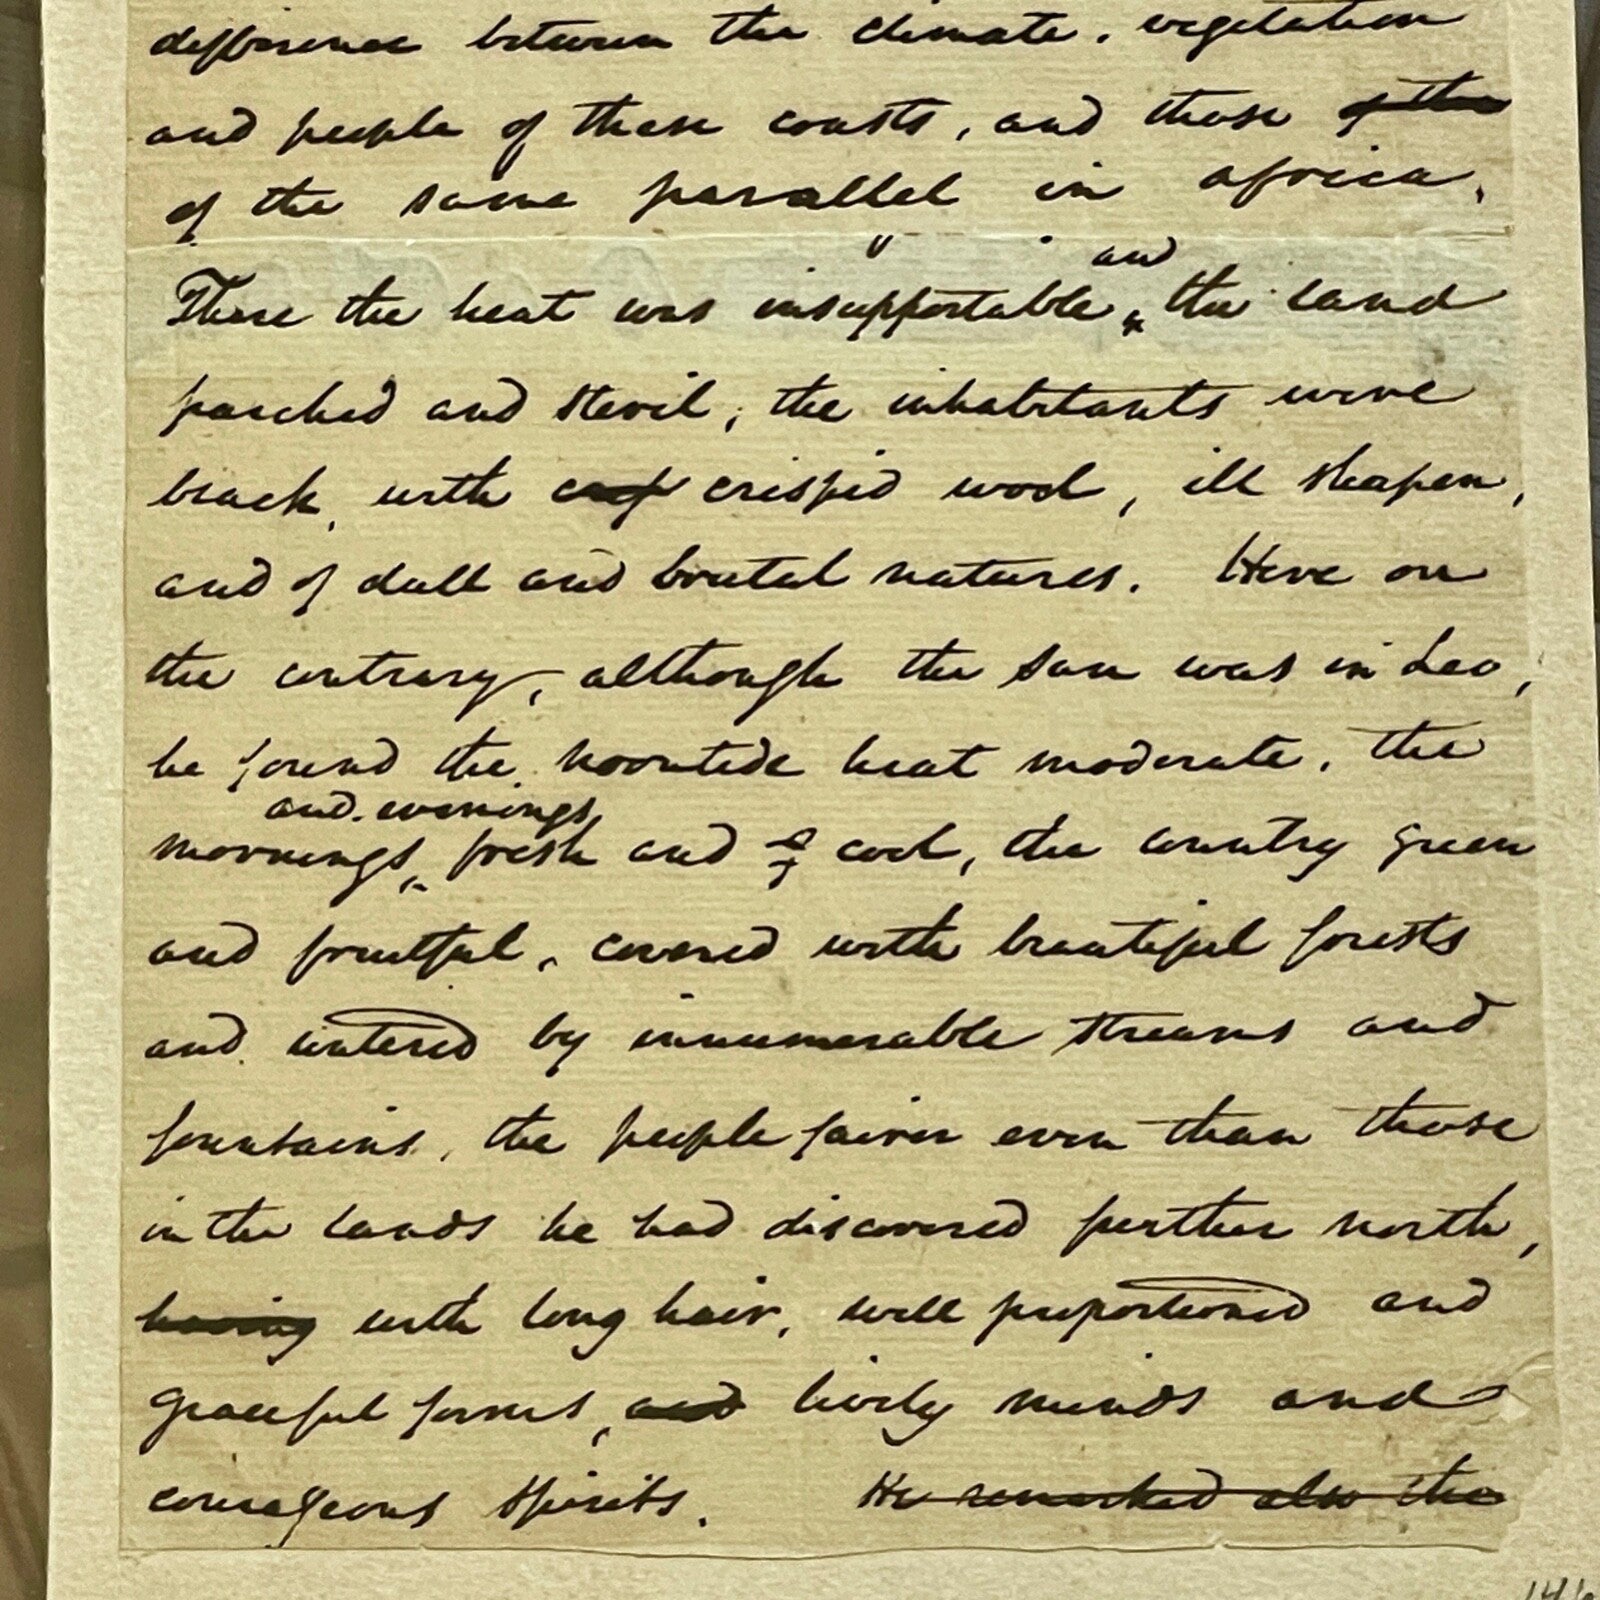 difference between the climate, vegetation
and people of these coasts, and those of the
of the same parallel in africa.
There the heat was insupportable and the land
parched and steril, the inhabitants were
black, with crisped wool, ill shapen,
and of dull and brutal natures. Here on
the contrary, although the sun was in Leo,
he found the noontide heat moderate, the
mornings and evenings fresh and cool, the country green
and fruitful, covered with beautiful forests
and watered by innumerable streams and
fountains, the people fairer even than those
in the lands he had discovered further north,
having with long hair, well proportioned and
graceful forms, and lively minds and
courageous spirits. He remarked also the